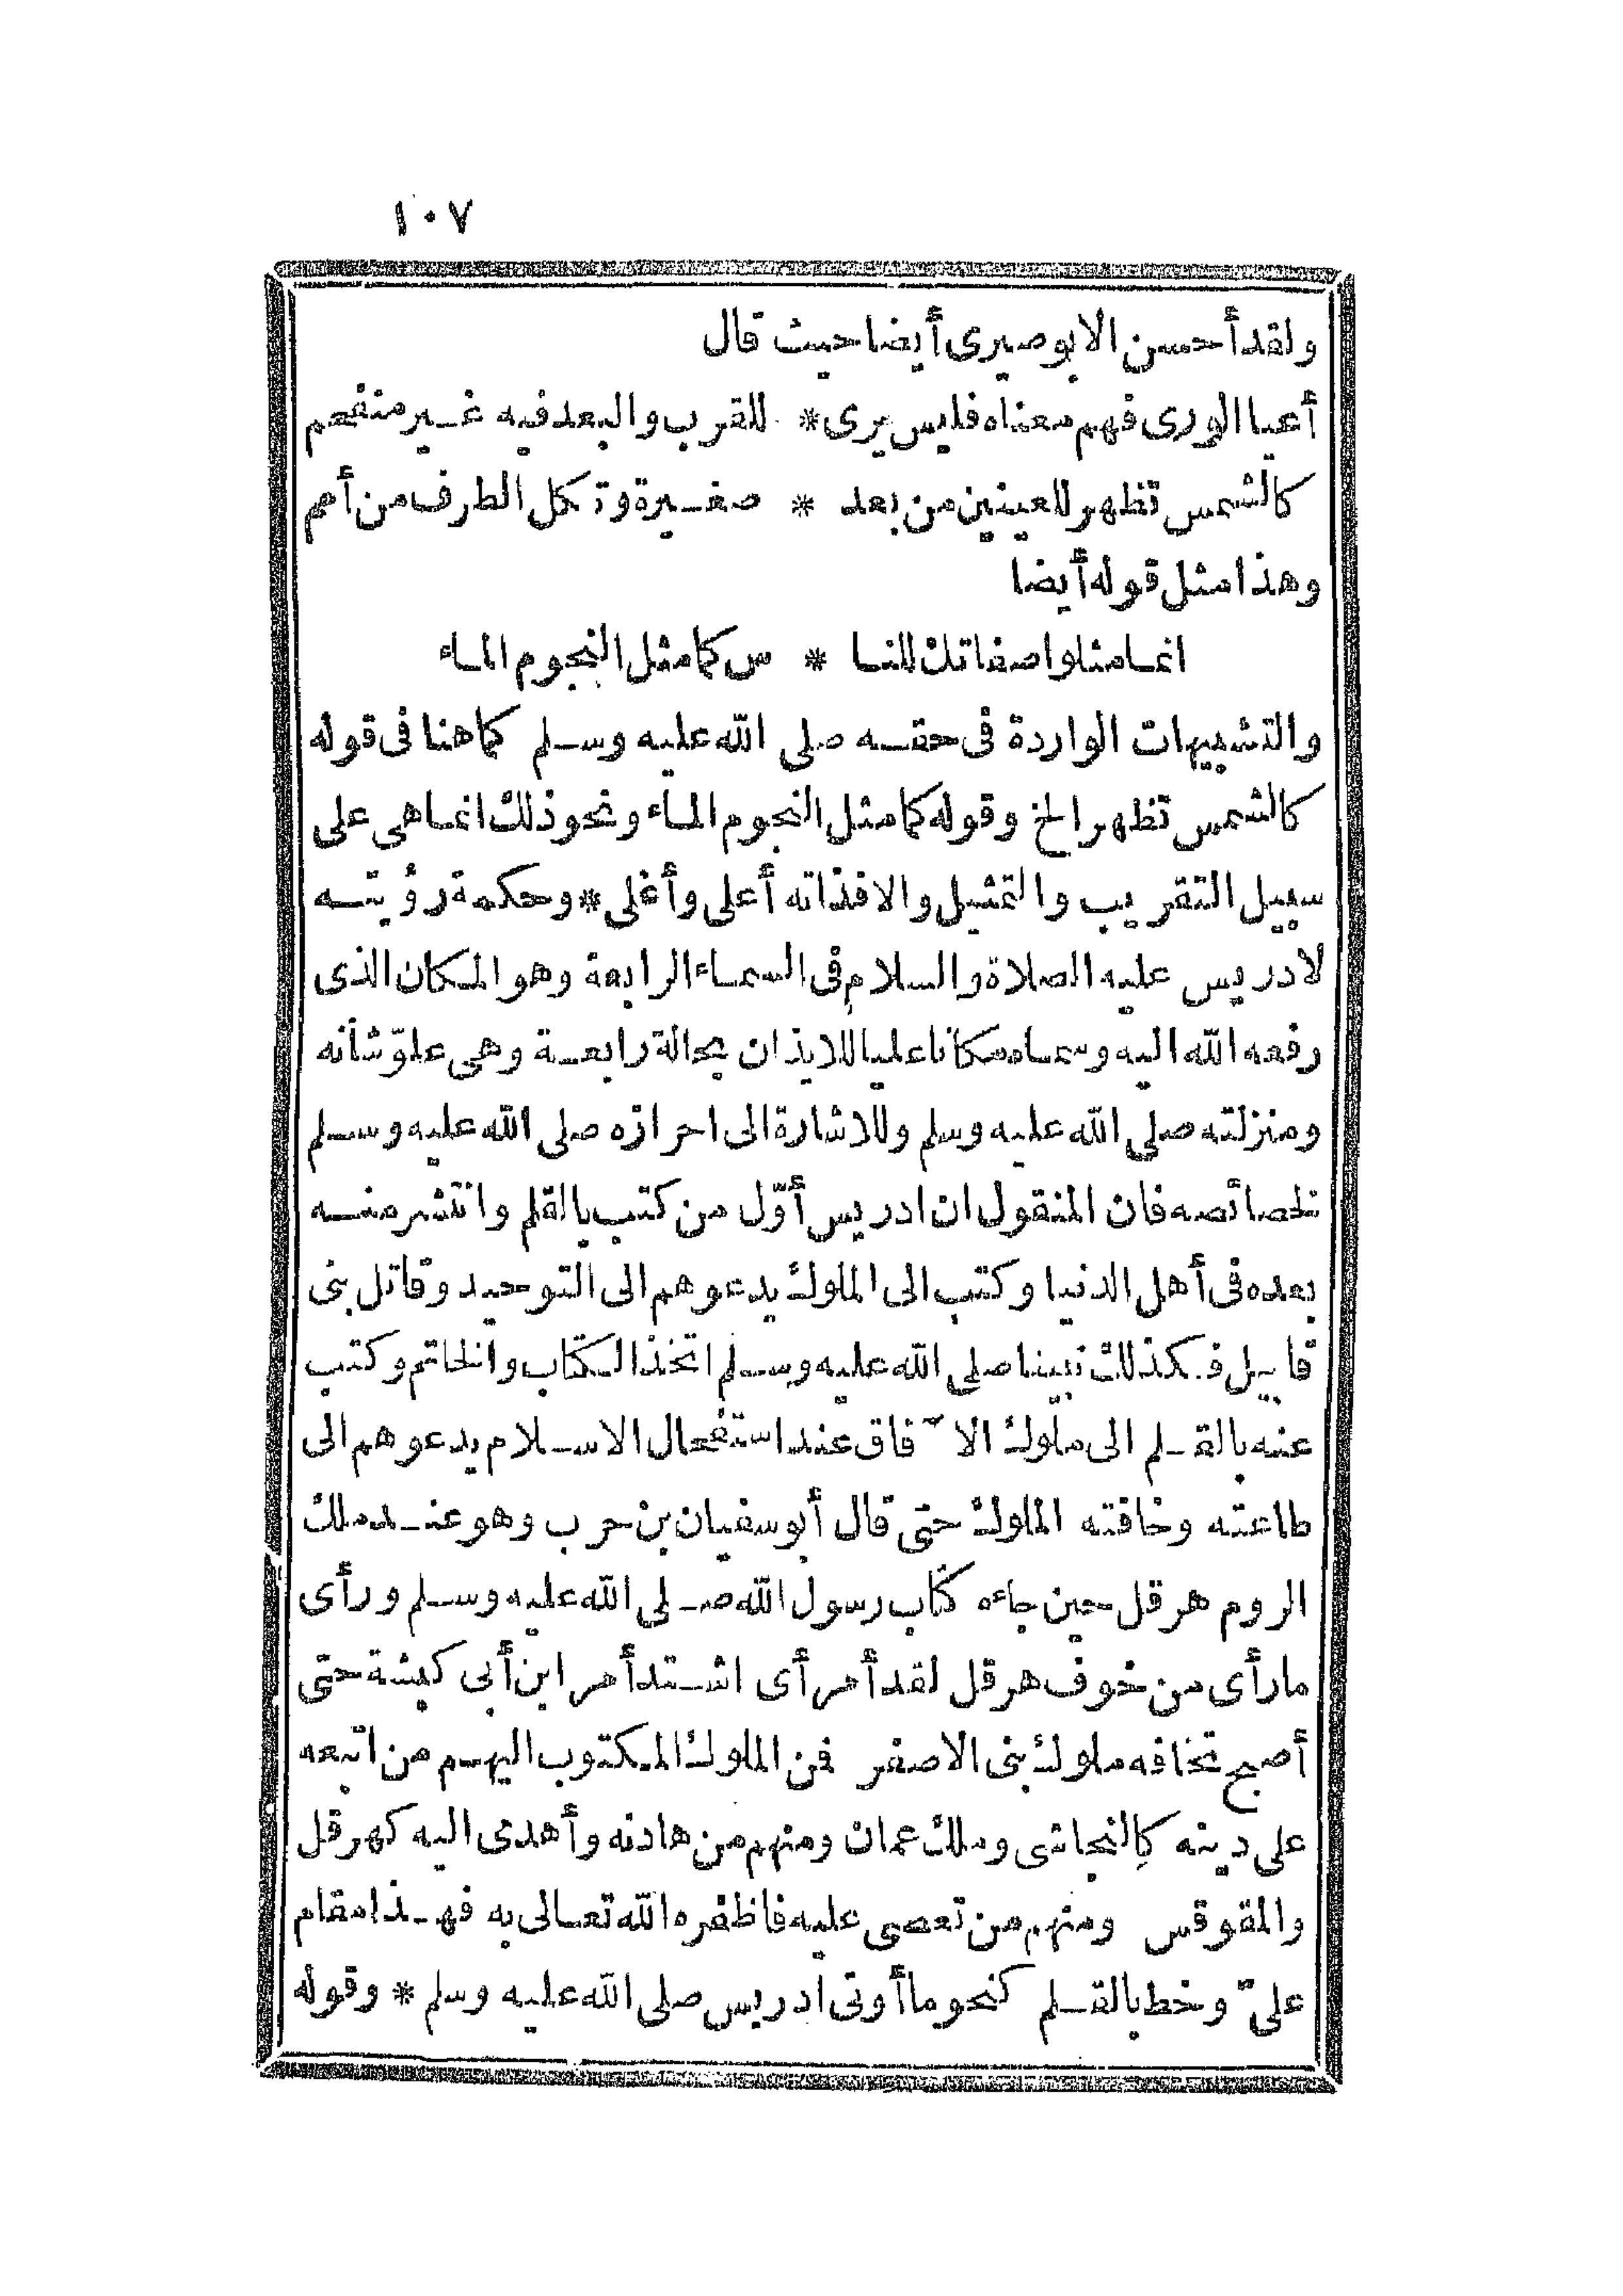 ١٠٧
ولقد أحسن الابوصيرى أيضا حيث قال
أعيا الورى فهم معناه فليس يرى * للقرب والبعد فيه غير منفحم
كالشمس تظهر للعينين من بعد * صغيرة وتكل الطرف من أمم
وهذا مثل قوله أيضا
انما مثلوا صفاتك للنا * س كما مثل النجوم الماء
والتشبيهات الواردة فى حقه صلى الله عليه وسلم كما هنا فى قوله
كالشمس تظهر الخ وقوله كما مثل النجوم الماء ونحو ذلك انما هى على
سبيل التقريب والتمثيل والا فذاته أعلى وأغلى * وحكمة رؤيته
لادريس عليه الصلاة والسلام فى السماء الرابعة وهو المكان الذى
رفعه الله اليه وسماه مكانا عليا للايذان بحالة رابعة وهى علوّ شأنه
ومنزلته صلى الله عليه وسلم وللاشارة الى احرازه صلى الله عليه وسلم
لخصائصه فان المنقول ان ادريس أوّل من كتب بالقلم وانتشر منه
بعده فى أهل الدنيا وكتب الى الملوك يدعوهم الى التوحيد وقاتل بنى
قابيل فكذلك نبينا صلى الله عليه وسلم اتخذ الكتاب والخاتم وكتب
عنه بالقلم الى ملوك الآفاق عند استفحال الاسلام يدعوهم الى
طاعته وخافته الملوك حتى قال أبو سفيان بن حرب وهو عند ملك
الروم هرقل حين جاءه كتاب رسول الله صلى الله عليه وسلم ورأى
ما رأى من خوف هرقل لقد أمر أى اشتد أمر ابن أبى كبشة حتى
أصبح تخافه ملوك بنى الاصفر فمن الملوك المكتوب اليهم من اتبعه
على دينه كالنجاشى وملك عمان ومنهم من هادنه وأهدى اليه كهرقل
والمقوقس ومنهم من تعصى عليه فاظفره الله تعالى به فهذا مقام
علىّ وخط بالقلم كنحو ما أوتى ادريس صلى الله عليه وسلم * وقوله